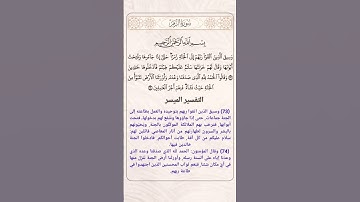 سورة الزمر
بسم الله الرحمن الرحيم
وسيق الذين اتقوا ربهم إلى الجنة زمرا حتى إذا جاءوها وفتحت
أبوابها وقال لهم خزنتها سلام عليكم طبتم فادخلوها خالدين
وقالوا الحمد لله الذي صدقنا وعده وأورثنا الأرض نتبوأ من
الجنة حيث نشاء فنعم أجر العاملين
التفسير الميسر
(73) وسيق الذين اتقوا ربهم بتوحيده والعمل بطاعته إلى
الجنة جماعات، حتى إذا جاؤوها وشفع لهم بدخولها، فتحت
أبوابها، فترحب بهم الملائكة الموكلون بالجنة، ويحيونهم
بالبشر والسرور؛ لطهارتهم من آثار المعاصي قائلين لهم:
سلام عليكم من كل آفة، طابت أحوالكم، فادخلوا الجنة
خالدين فيها.
(74) وقال المؤمنون: الحمد لله الذي صدقنا وعده الذي
وعدنا إياه على ألسنة رسله، وأورثنا أرض الجنة ننزل منها
في أي مكان شئنا، فنعم ثواب المحسنين الذين اجتهدوا في
طاعة ربهم.